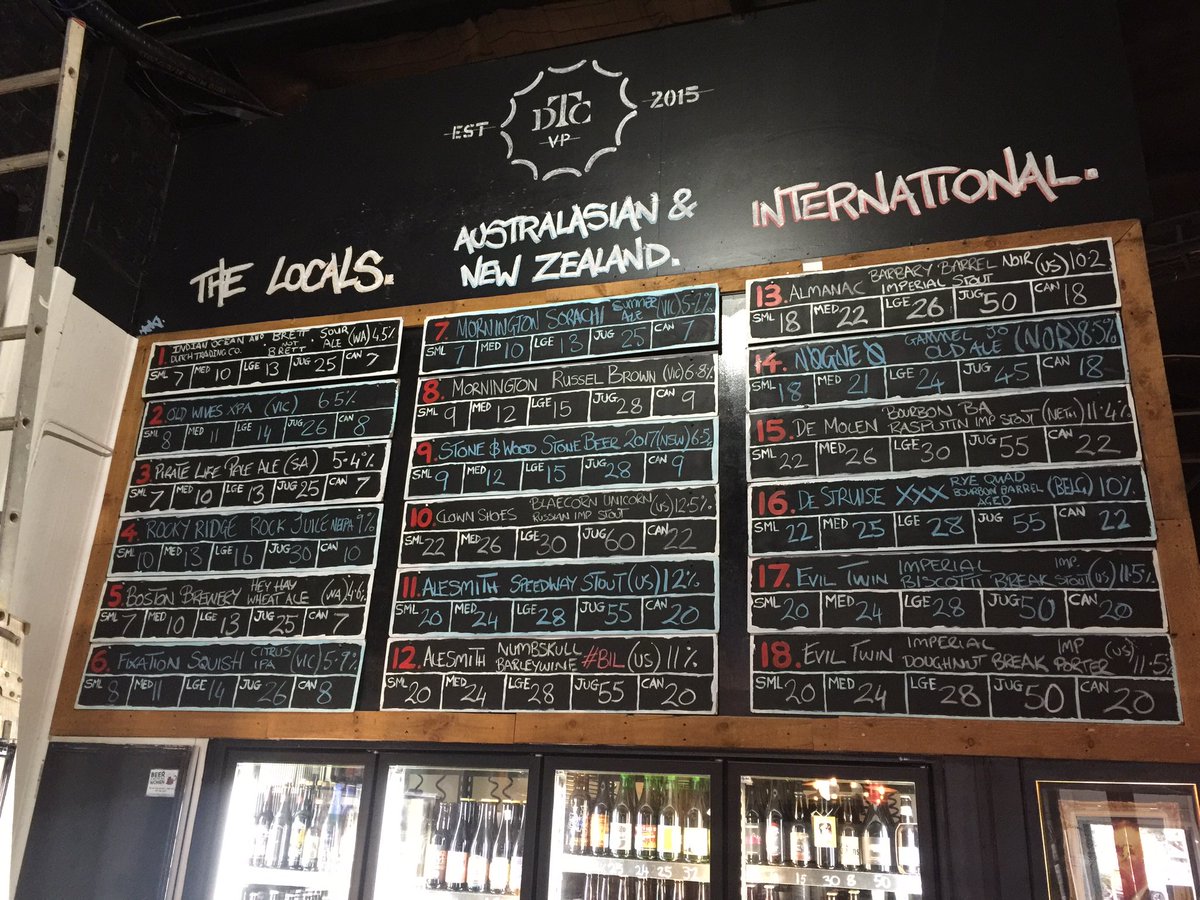 EST
DTC
VP
2015
THE LOCALS.
1. INDIAN OCEAN AND BRETT, SOUR
DUTCH TRADING CO. NOT BRETT. ALE (WA) 4.5%
SML 7 MED 10 LGE 13 JUG 25 CAN 7
2. OLD WIVES XPA (VIC) 6.5%
SML 8 MED 11 LGE 14 JUG 26 CAN 8
3. PIRATE LIFE PALE ALE (SA) 5.4%
SML 7 MED 10 LGE 13 JUG 25 CAN 7
4. ROCKY RIDGE ROCK JUICE NEIPA 9%
SML 10 MED 13 LGE 16 JUG 30 CAN 10
5. BOSTON BREWERY HEY HAY
WHEAT ALE (WA) 4.6%
SML 7 MED 10 LGE 13 JUG 25 CAN 7
6. FIXATION SQUISH CITRUS
IPA (VIC) 5.9%
SML 8 MED 11 LGE 14 JUG 26 CAN 8
AUSTRALASIAN &
NEW ZEALAND.
7. MORNINGTON SORACHI SUMMER
ALE (VIC) 5.2%
SML 7 MED 10 LGE 13 JUG 25 CAN 7
8. MORNINGTON RUSSEL BROWN (VIC) 6.8%
SML 9 MED 12 LGE 15 JUG 28 CAN 9
9. STONE & WOOD STONE BEER 2017 (NSW) 6.5
SML 9 MED 12 LGE 15 JUG 28 CAN 9
10. CLOWN SHOES BLAECORN UNICORN
RUSSIAN IMP STOUT (US) 12.5%
SML 22 MED 26 LGE 30 JUG 60 CAN 22
11. ALESMITH SPEEDWAY STOUT (US) 12%
SML 20 MED 24 LGE 28 JUG 55 CAN 20
12. ALESMITH NUMBSKULL
BARLEYWINE #BIL (US) 11%
SML 20 MED 24 LGE 28 JUG 55 CAN 20
INTERNATIONAL.
13. ALMANAC BARBARY BARREL NOIR
IMPERIAL STOUT (US) 10.2
SML 18 MED 22 LGE 26 JUG 50 CAN 18
14. NØGNE Ø GAMMEL JO
OLD ALE (NOR) 8.5%
SML 18 MED 21 LGE 24 JUG 45 CAN 18
15. DE MOLEN BOURBON BA
RASPUTIN IMP STOUT (NETH) 11.4%
SML 22 MED 26 LGE 30 JUG 55 CAN 22
16. DE STRUISE XXX RYE QUAD
BOURBON BARREL
AGED (BELG) 10%
SML 22 MED 25 LGE 28 JUG 55 CAN 22
17. EVIL TWIN IMPERIAL IMP.
BISCOTTI BREAK STOUT (US) 11.5%
SML 20 MED 24 LGE 28 JUG 50 CAN 20
18. EVIL TWIN IMPERIAL IMP
DOUGHNUT BREAK PORTER (US) 11.5%
SML 20 MED 24 LGE 28 JUG 50 CAN 20
BEER